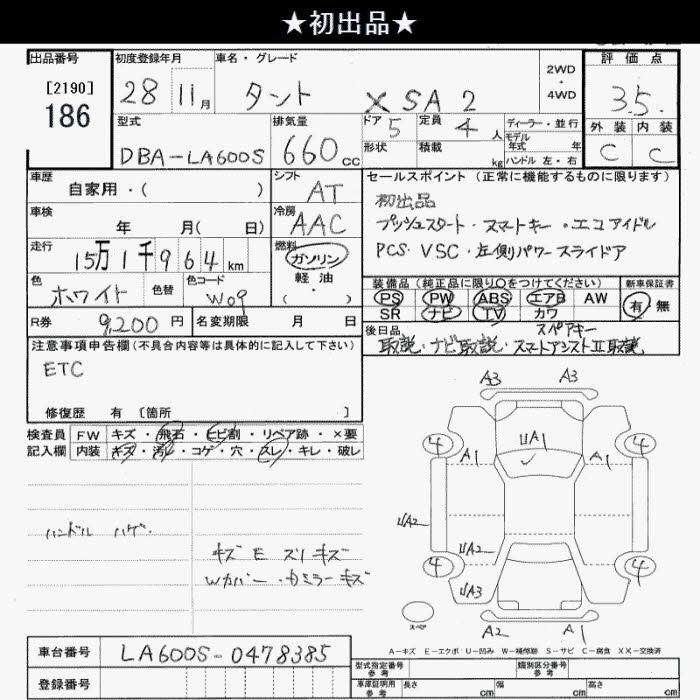 ★初出品★
出品番号 初度登録年月 車名・グレード 2WD・4WD 評価点
[2190]
186
28 11月 タント X SA2 3.5
型式 排気量 ドア 5 定員 4人 ディーラー・並行 外装 内装
DBA-LA600S 660cc 形状 積載 kg モデル年式 年 C C
ハンドル 左・右
車歴 自家用・( ) シフト AT セールスポイント (正常に機能するものに限ります)
車検 年 月( 日) 冷房 AAC 初出品
プッシュスタート・スマートキー・エコアイドル
走行 15万1千964km 燃料 ガソリン 軽油 ( ・ ) PCS・VSC・左側パワースライドア
色 ホワイト 色替 色コード W09 装備品 (純正品に限り○をつけてください) 新車保証書
PS PW ABS エアB AW 有・無
SR ナビ TV カワ
R券 9,200円 名変期限 月 日 後日品 スペアキー
取説・ナビ取説・スマートアシストII取説
注意事項申告欄 (不具合内容等は具体的に記入して下さい)
ETC
修復歴 有 [箇所 ]
検査員 FW キズ・飛石・ヒビ割・リペア跡・×要
記入欄 内装 キズ・汚レ・コゲ・穴・スレ・キレ・破レ
ハンドル ハゲ.
キズE スリキズ
Wカバー・カミラーキズ
A3 A3
4 UA1 4
A1 A1
UA2
UA2
4 4
UA3
スペア A2 A1
A-キズ E-エクボ U-凹み W-補修跡 S-サビ C-腐食 XX-交換済
車台番号 LA600S-0478385
登録番号
型式指定番号 参考 類別区分番号 参考
車庫証明用 参考 長さ cm 幅 cm 高さ cm